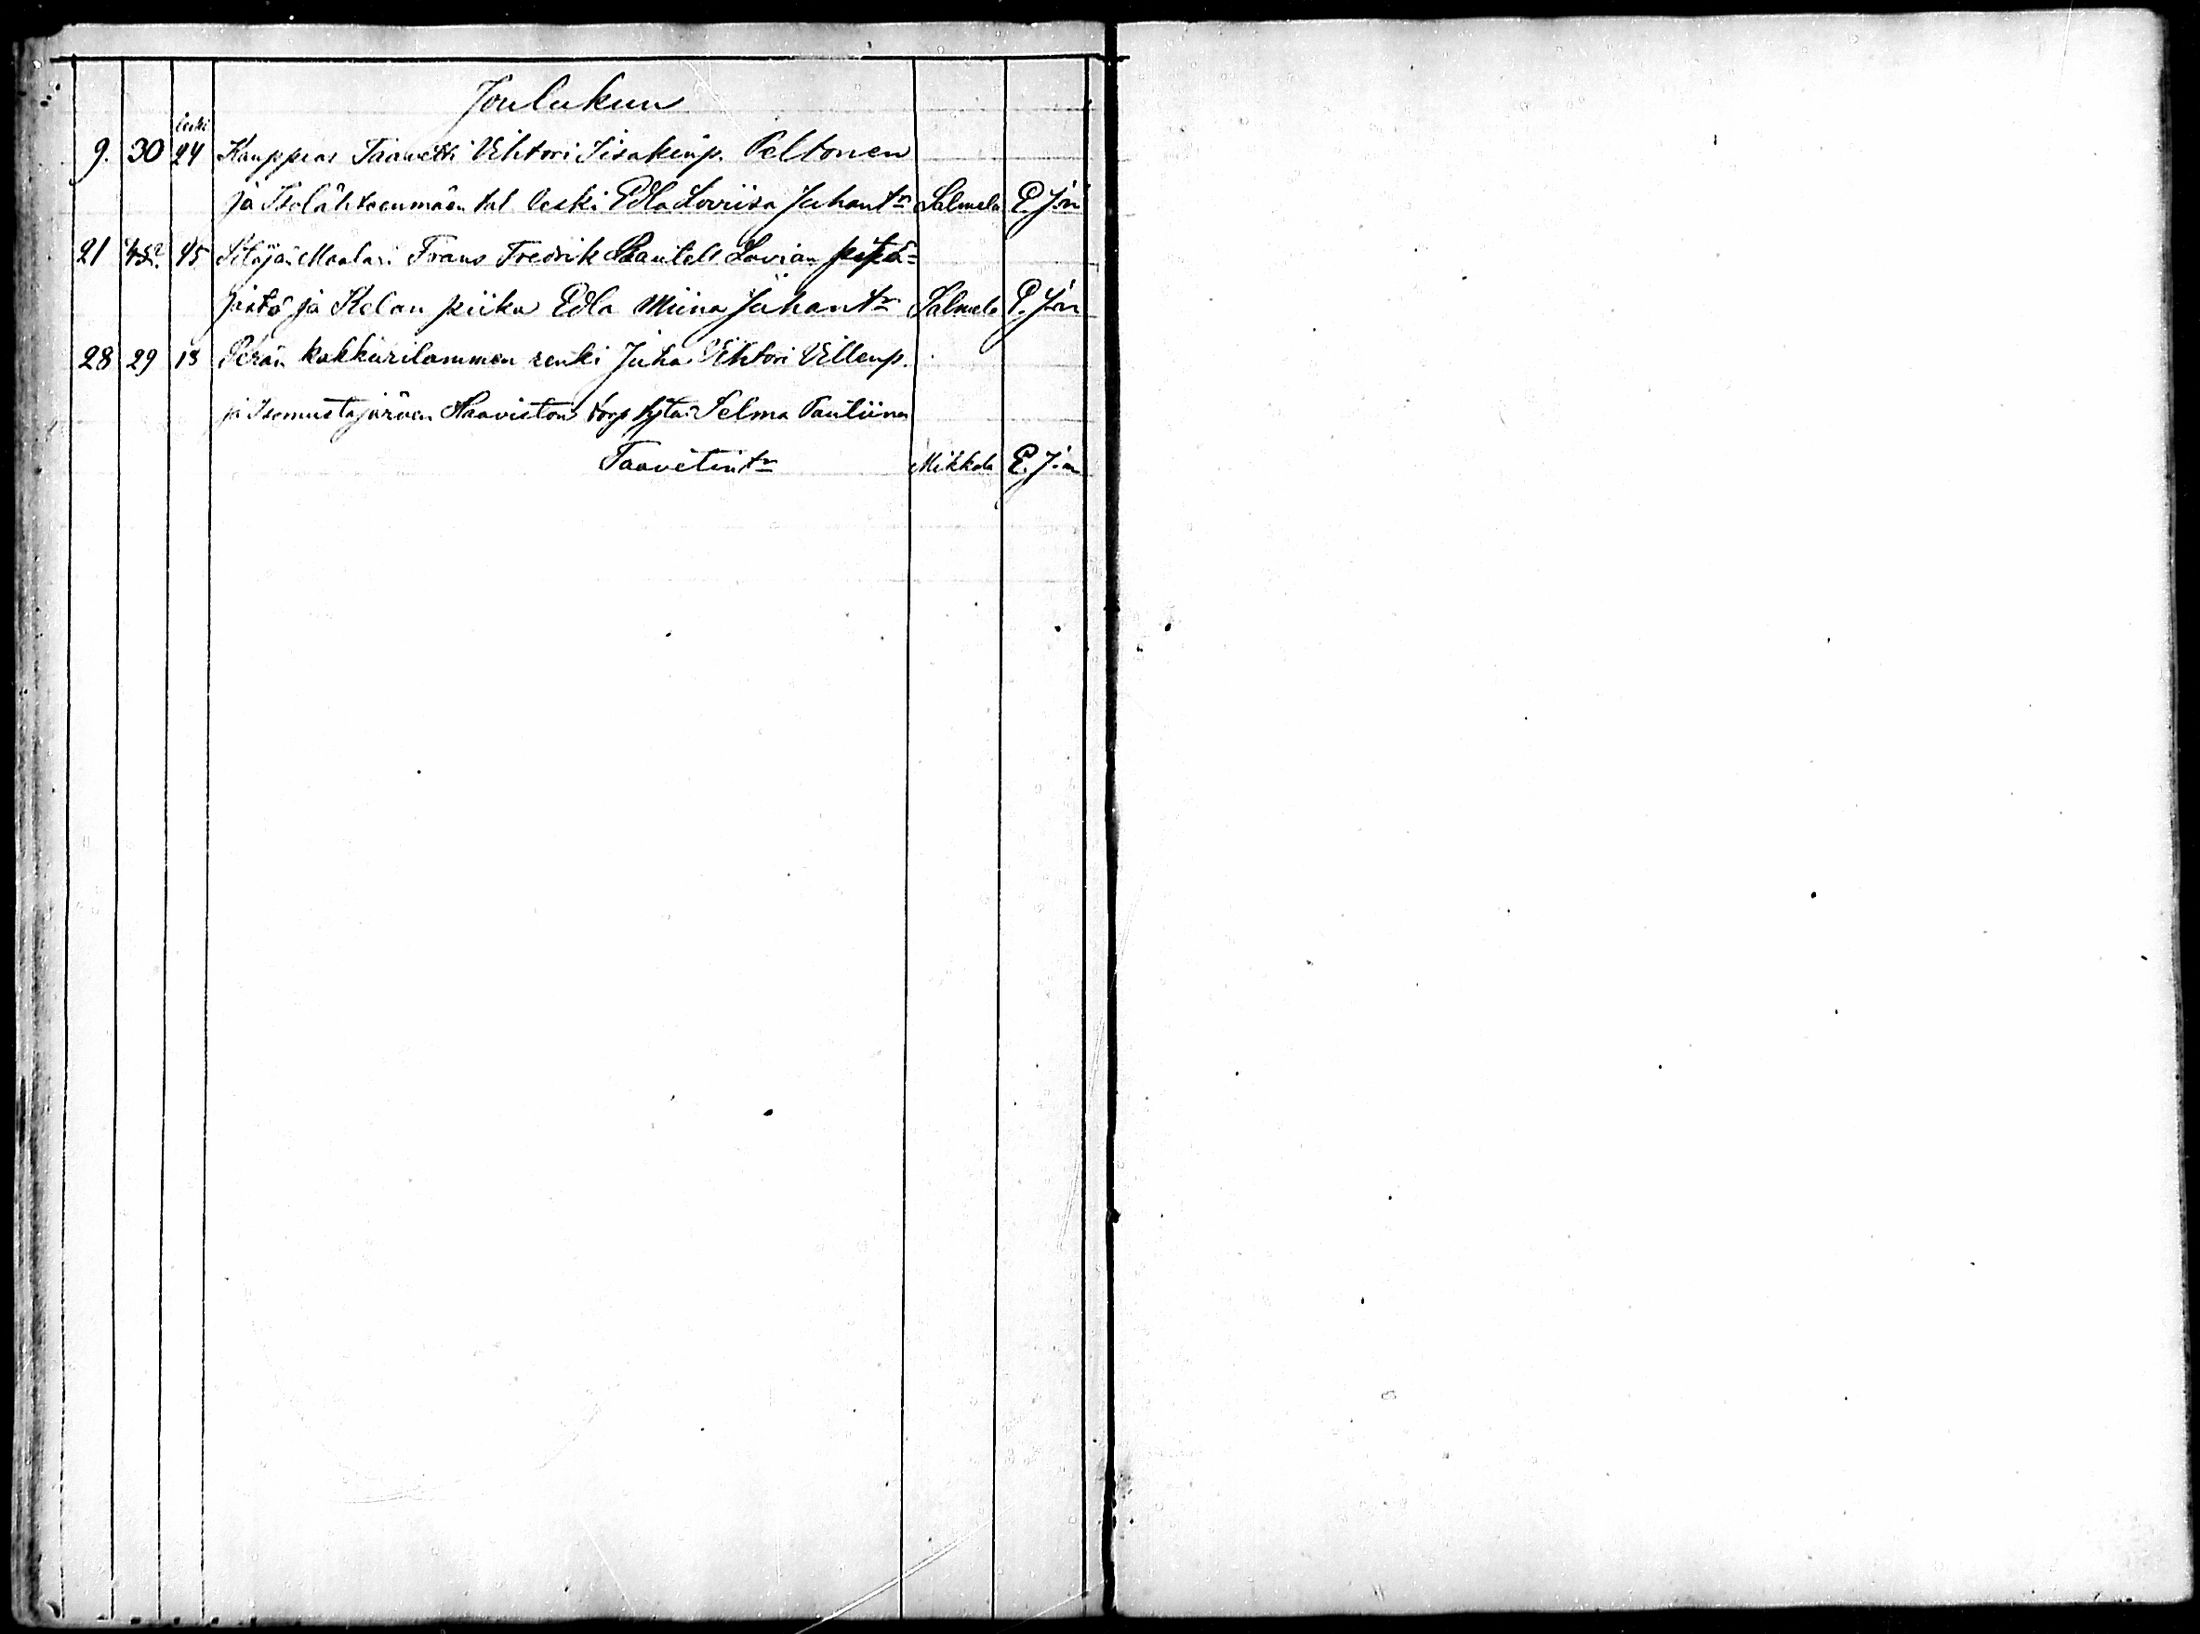 Joulukun
leski
9. 30 24 Kauppias Taawetti Vihtori Iisakinp. Peltonen
ja Isolähteenmäen tal. leski Edla Loviisa Juhant:r Salmela E. J:ni
21 45 Maalari Frans Fredrik Lavian pitä=
jästä ja Kelan piika Edla Miina Juhant:r Salmela E. J:ni
28 29 13 Perän Kakkurilammen renki Juha Vihtori Villenp.
ja Isomustajärven Haaviston torp. tytär Selma Pauliina
Taavetint:r Mikkola E. J:ni